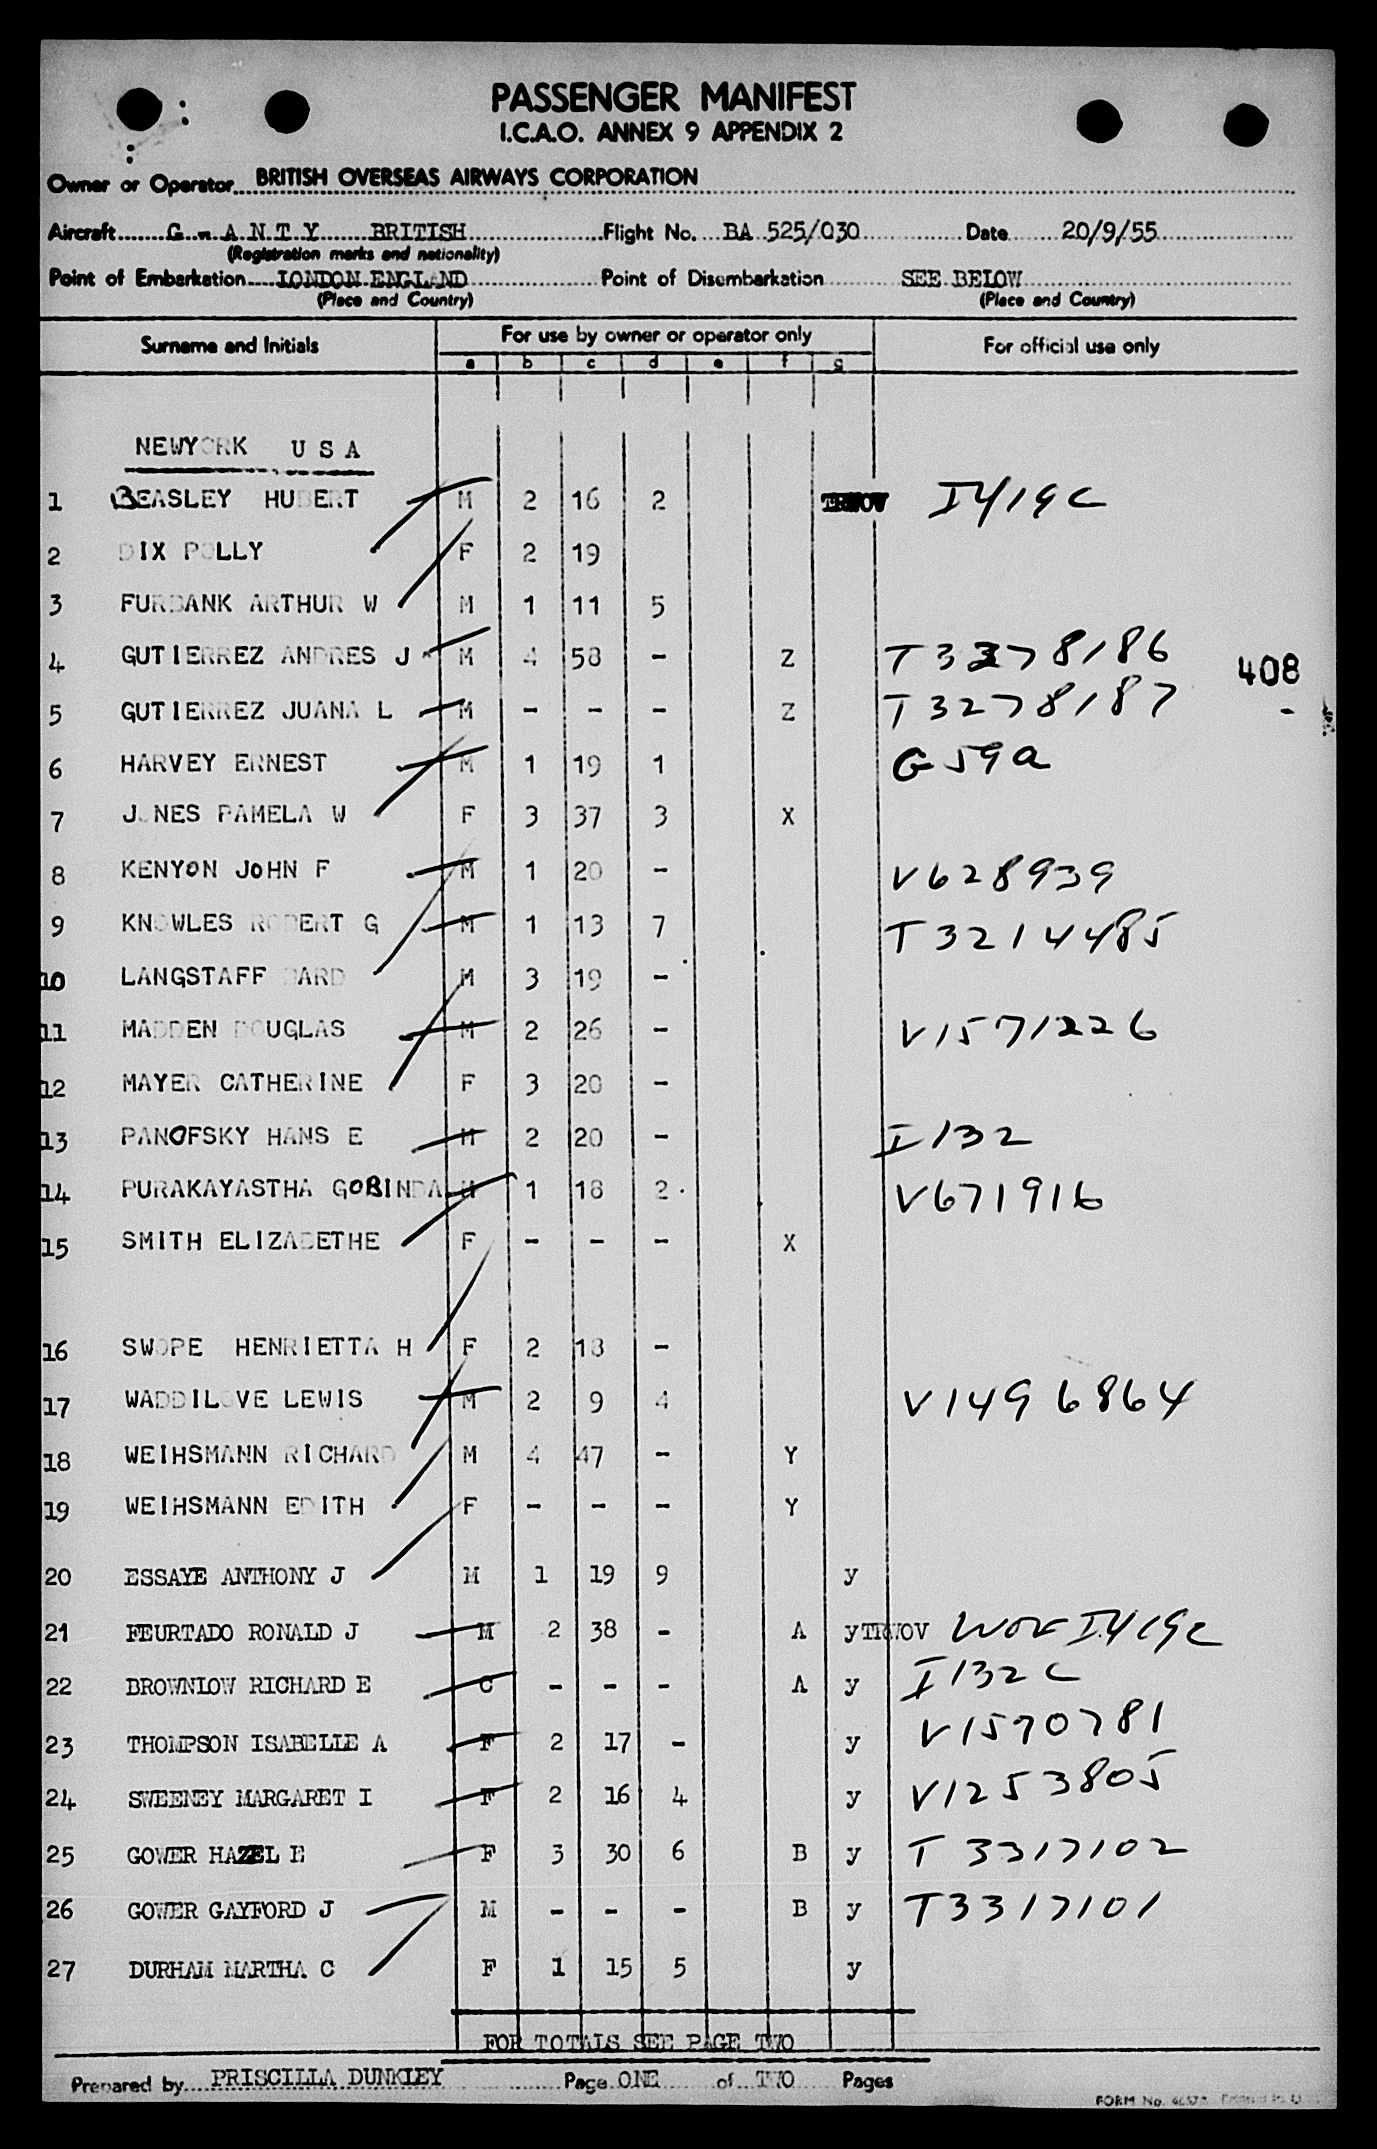 PASSENGER MANIFEST
I.C.A.O. ANNEX 9 APPENDIX 2
Owner or Operator BRITISH OVERSEAS AIRWAYS CORPORATION
Aircraft G - A N T Y BRITISH Flight No. BA 525/030 Date 20/9/55
(Registration marks and nationality)
Point of Embarkation LONDON ENGLAND Point of Disembarkation SEE BELOW
(Place and Country) (Place and Country)
Surname and Initials For use by owner or operator only For official use only
a b c d e f g
NEWYORK U S A
1 BEASLEY HUBERT M 2 16 2 TRWOV I4/19C
2 DIX POLLY F 2 19
3 FURBANK ARTHUR W M 1 11 5
4 GUTIERREZ ANDRES J M 4 58 - Z T3278186 408
5 GUTIERREZ JUANA L M - - - Z T3278187 -
6 HARVEY ERNEST M 1 19 1 G59a
7 JONES PAMELA W F 3 37 3 X
8 KENYON JOHN F M 1 20 - V628939
9 KNOWLES ROBERT G M 1 13 7 T3214485
10 LANGSTAFF BARD M 3 19 -
11 MADDEN DOUGLAS M 2 26 - V1571226
12 MAYER CATHERINE F 3 20 -
13 PANOFSKY HANS E M 2 20 - I132
14 PURAKAYASTHA GOBINDA M 1 18 2 V671916
15 SMITH ELIZABETHE F - - - X
16 SWOPE HENRIETTA H F 2 18 -
17 WADDILOVE LEWIS M 2 9 4 V1496864
18 WEIHSMANN RICHARD M 4 47 - Y
19 WEIHSMANN EDITH F - - - Y
20 ESSAYE ANTHONY J M 1 19 9 y
21 FEURTADO RONALD J M 2 38 - A y TRWOV WOV I4/19c
22 BROWNLOW RICHARD E C - - - A y I132C
23 THOMPSON ISABELLE A F 2 17 - y V1570781
24 SWEENEY MARGARET I F 2 16 4 y V1253805
25 GOWER HAZEL E F 3 30 6 B y T 3317102
26 GOWER GAYFORD J M - - - B y T3317101
27 DURHAM MARTHA C F 1 15 5 y
FOR TOTALS SEE PAGE TWO
Prepared by PRISCILLA DUNKLEY Page ONE of TWO Pages
FORM No.